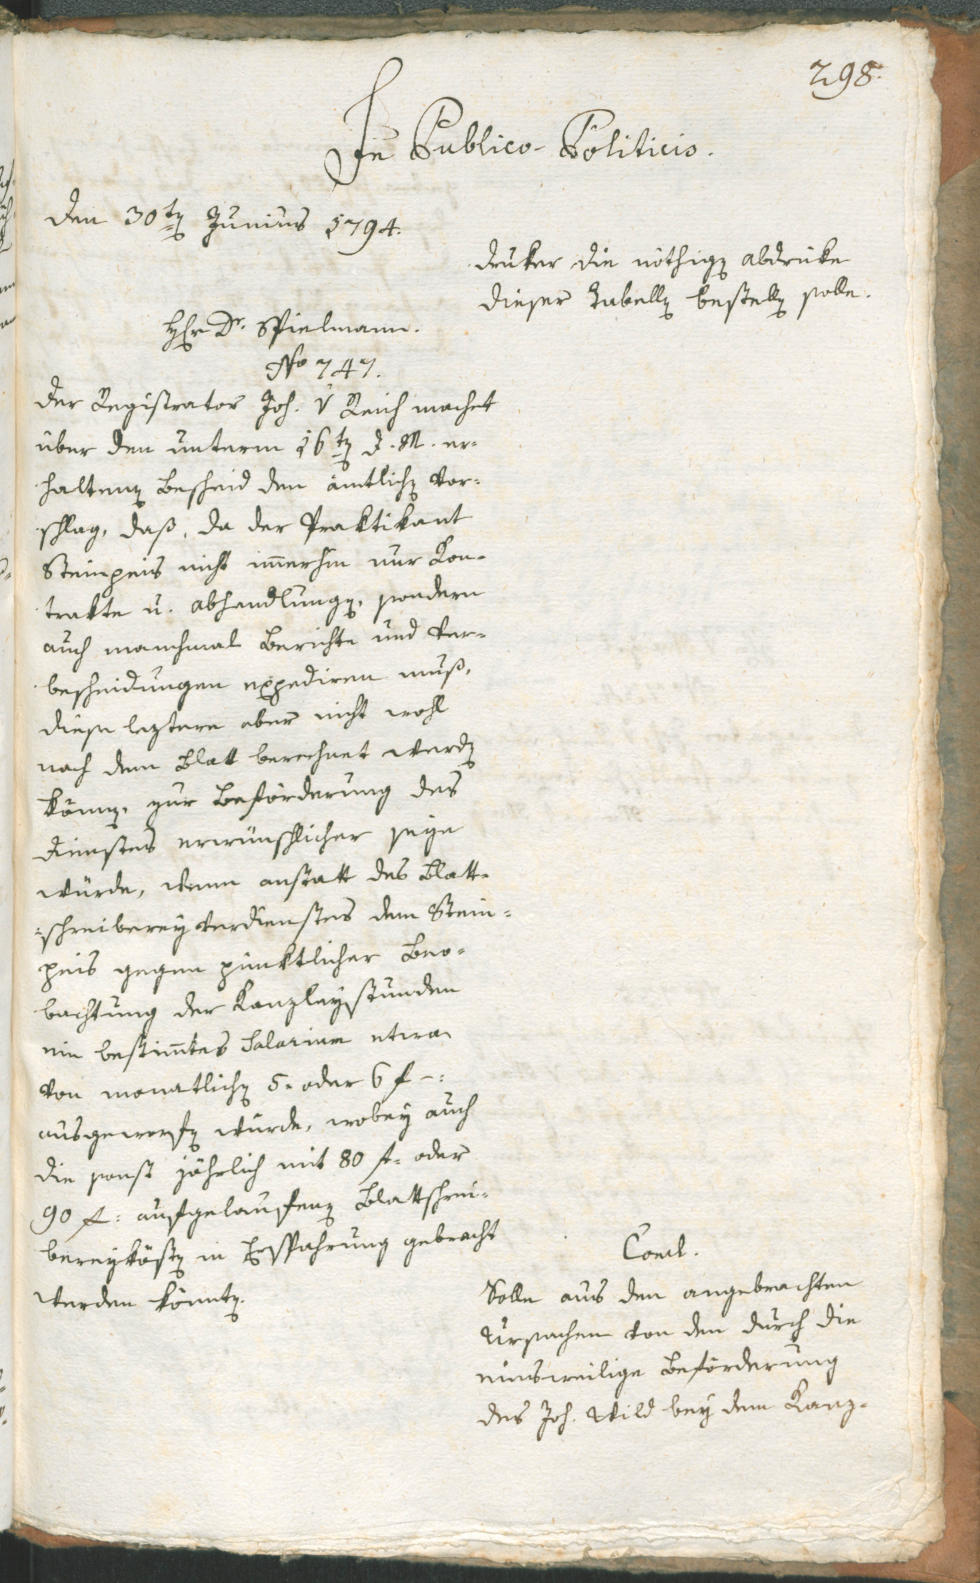 298.
In Publico-Politicis.
Den 30ten Junius 1794.
druker die nöthigen abdrüke
dieser Tabellen bestellen solle.
Hr Dr. Spielmann.
No 747.
Der Registrator Joh. v Reich machet
über den unterm 16ten d. M. er-
haltenen Bescheid den ämtlichen Vor-
schlag, daß, da der Praktikant
Steinpeis nicht immerhin nur Kon-
trakte u. abhandlungen, sondern
auch manchmal Berichte und Ver-
bescheidungen expediren muß,
diese leztere aber nicht wohl
nach dem Blatt berechnet werden
können, zur Beförderung des
Dienstes erwünschlicher seyn
würde, wenn anstatt des Blatt-
schreiberey verdienstes dem Stein-
peis gegen pünktlicher Beo-
bachtung der Kanzleystunden
ein bestimmtes Salarium etwa
von monatlichen 5- oder 6 f -:
ausgeworfen würde, wobey auch
die sonst jährlich mit 80 f- oder
90 f: aufgelaufenen Blattschrei-
bereykösten in Ersparung gebracht
werden könnten.
Concl.
Solle aus den angebrachten
Ursachen von den durch die
einsweilige Beförderung
des Joh. Wild bey dem Kanz-